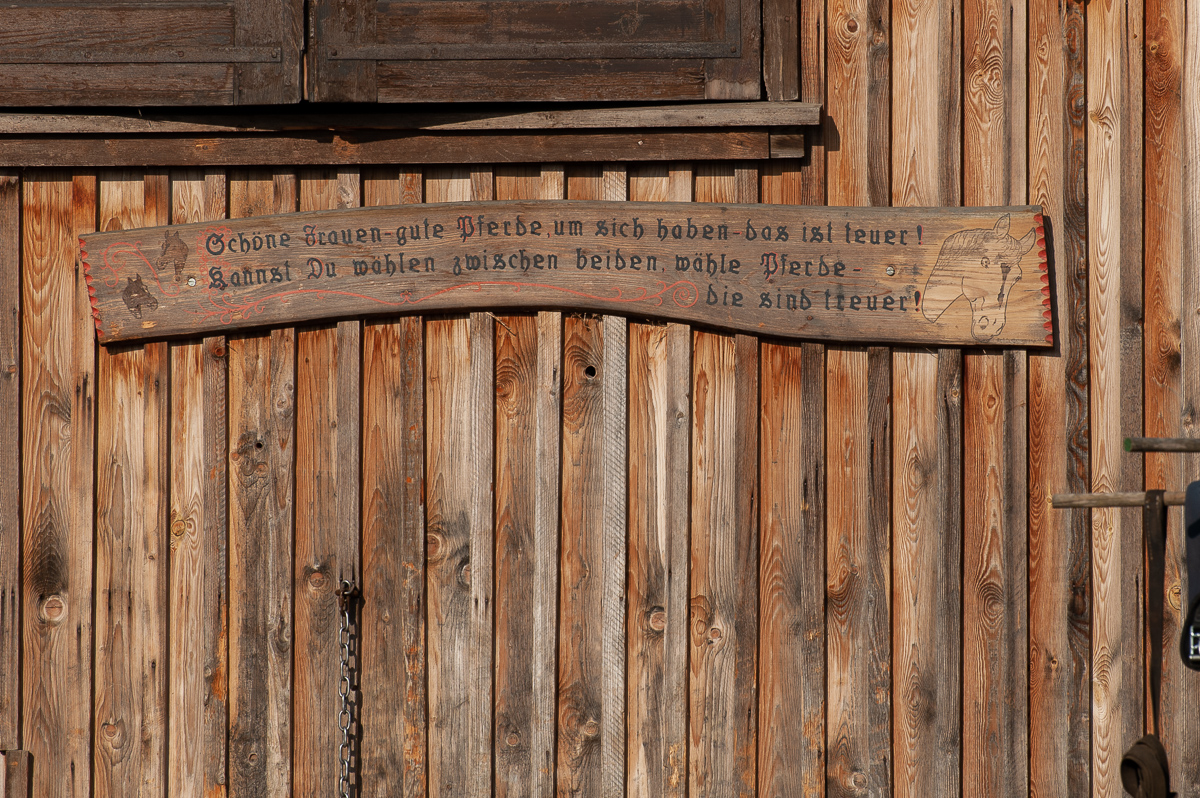 Schöne Frauen-gute Pferde, um sich haben-das ist teuer!
Kannst Du wählen zwischen beiden, wähle Pferde-
die sind treuer!